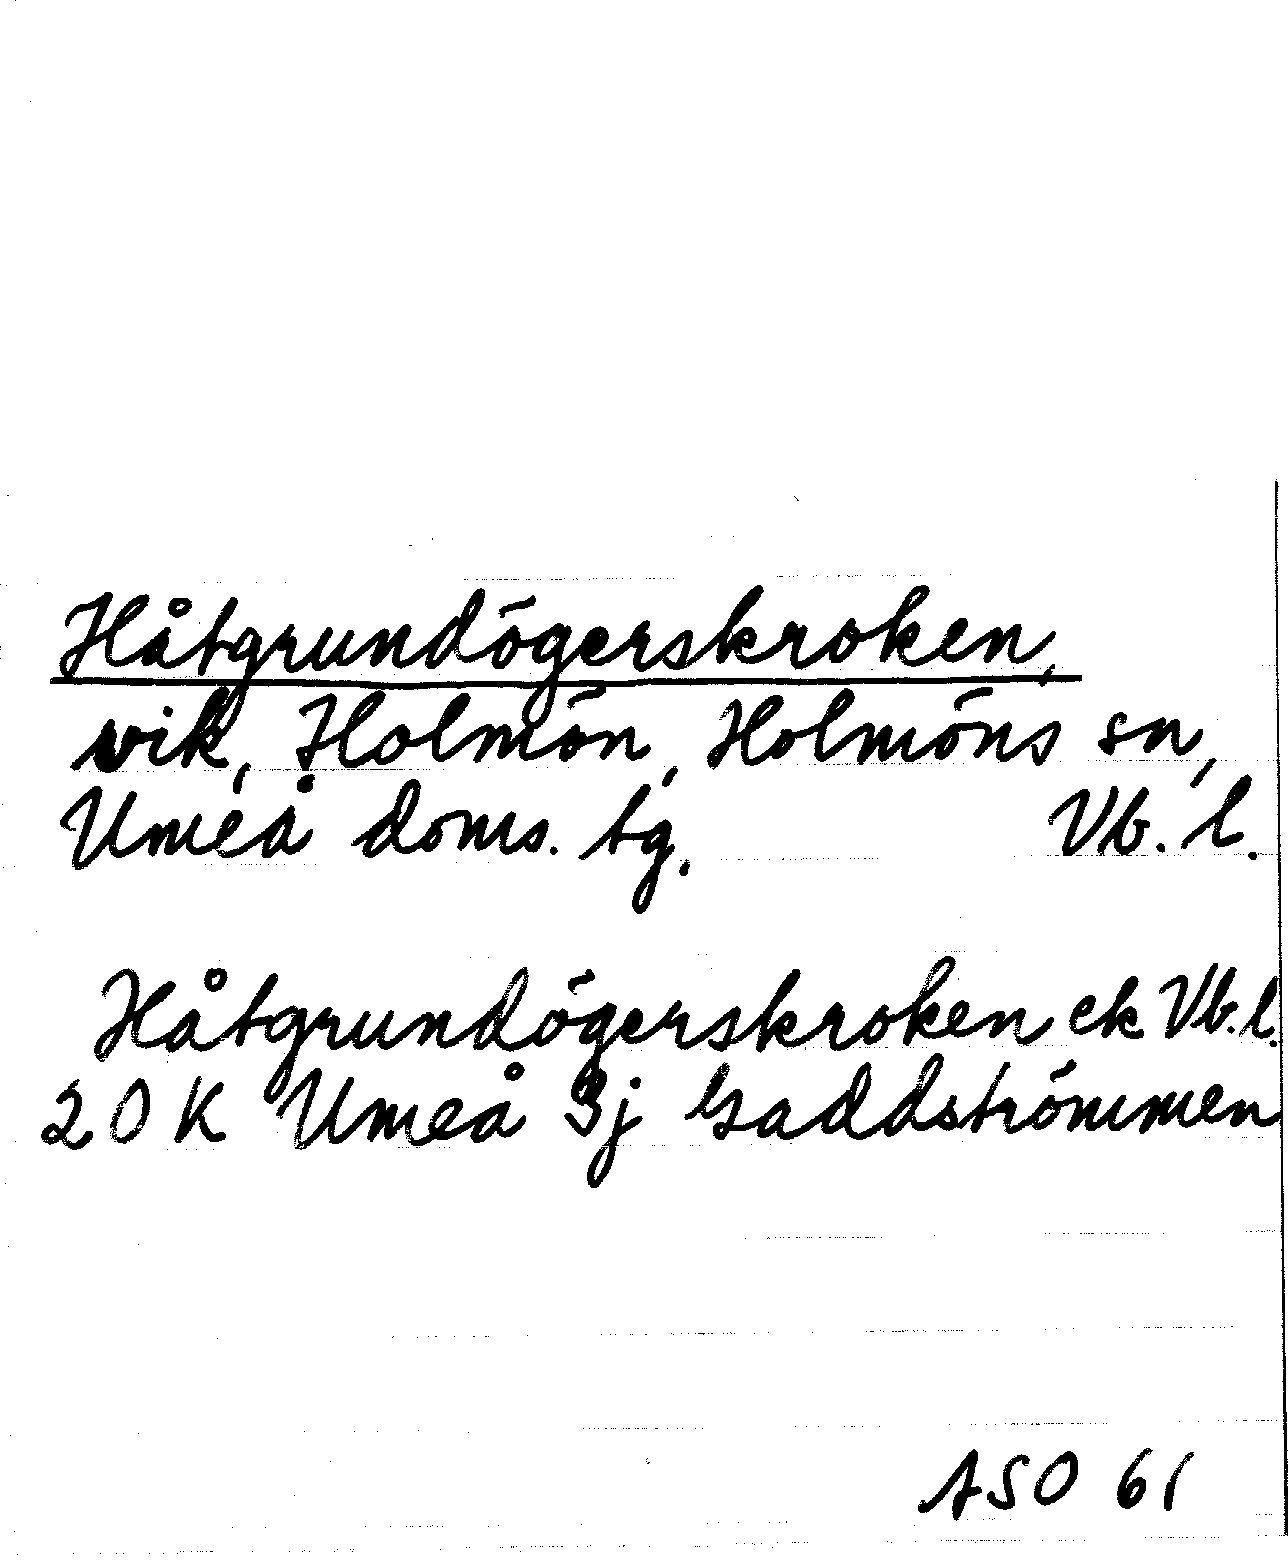 Håtgrundögerskroken,
vik, Holmön, Holmöns sn,
Umeå doms. tg. Vb. l.
Håtgrundögerskroken ek Vb. l.
20 K Umeå 3j Gaddströmmen
ASO 61